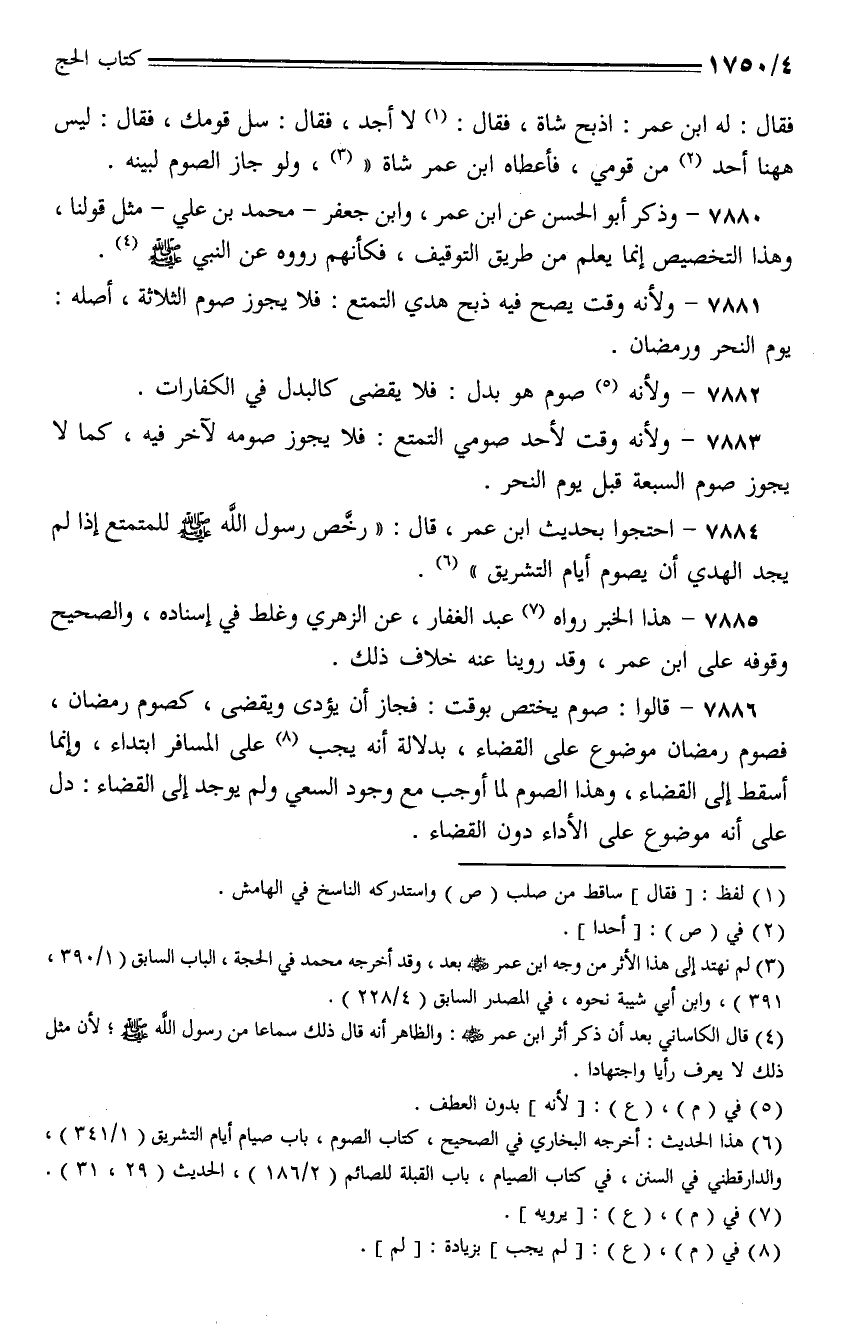 ١٧٥٠/٤ كتاب الحج
فقال : له ابن عمر : اذبح شاة ، فقال : (١) لا أجد ، فقال : سل قومك ، فقال : ليس
ههنا أحد (٢) من قومي ، فأعطاه ابن عمر شاة » (٣) ، ولو جاز الصوم لبينه .
٧٨٨٠ – وذكر أبو الحسن عن ابن عمر ، وابن جعفر – محمد بن علي – مثل قولنا ،
وهذا التخصيص إنما يعلم من طريق التوقيف ، فكأنهم رووه عن النبي ﷺ (٤) .
٧٨٨١ – ولأنه وقت يصح فيه ذبح هدي التمتع : فلا يجوز صوم الثلاثة ، أصله :
يوم النحر ورمضان .
٧٨٨٢ – ولأنه (٥) صوم هو بدل : فلا يقضى كالبدل في الكفارات .
٧٨٨٣ – ولأنه وقت لأحد صومي التمتع : فلا يجوز صومه لآخر فيه ، كما لا
يجوز صوم السبعة قبل يوم النحر .
٧٨٨٤ – احتجوا بحديث ابن عمر ، قال : « رخَّص رسول اللَّه ﷺ للمتمتع إذا لم
يجد الهدي أن يصوم أيام التشريق » (٦) .
٧٨٨٥ – هذا الخبر رواه (٧) عبد الغفار ، عن الزهري وغلط في إسناده ، والصحيح
وقوفه على ابن عمر ، وقد روينا عنه خلاف ذلك .
٧٨٨٦ – قالوا : صوم يختص بوقت : فجاز أن يؤدى ويقضى ، كصوم رمضان ،
فصوم رمضان موضوع على القضاء ، بدلالة أنه يجب (٨) على المسافر ابتداء ، وإنما
أسقط إلى القضاء ، وهذا الصوم لما أوجب مع وجود السعي ولم يوجد إلى القضاء : دل
على أنه موضوع على الأداء دون القضاء .
(١) لفظ : [ فقال ] ساقط من صلب ( ص ) واستدركه الناسخ في الهامش .
(٢) في ( ص ) : [ أحدا ] .
(٣) لم نهتد إلى هذا الأثر من وجه ابن عمر ﷺ بعد ، وقد أخرجه محمد في الحجة ، الباب السابق ( ٣٩٠/١ ،
٣٩١ ) ، وابن أبي شيبة نحوه ، في المصدر السابق ( ٢٢٨/٤ ) .
(٤) قال الكاساني بعد أن ذكر أثر ابن عمر ﷺ : والظاهر أنه قال ذلك سماعا من رسول اللَّه ﷺ ؛ لأن مثل
ذلك لا يعرف رأيا واجتهادا .
(٥) في ( م ) ، ( ع ) : [ لأنه ] بدون العطف .
(٦) هذا الحديث : أخرجه البخاري في الصحيح ، كتاب الصوم ، باب صيام أيام التشريق ( ٣٤١/١ ) ،
والدارقطني في السنن ، في كتاب الصيام ، باب القبلة للصائم ( ١٨٦/٢ ) ، الحديث ( ٢٩ ، ٣١ ) .
(٧) في ( م ) ، ( ع ) : [ يرويه ] .
(٨) في ( م ) ، ( ع ) : [ لم يجب ] بزيادة : [ لم ] .